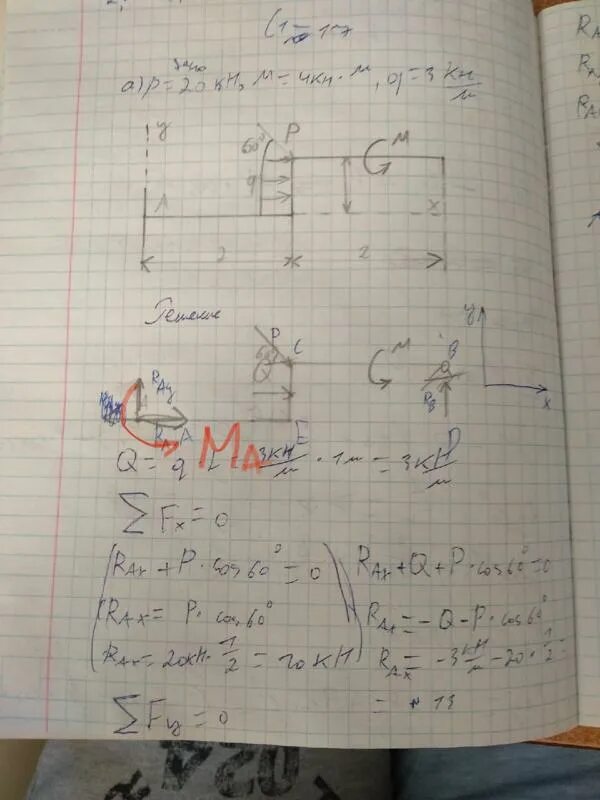 C1 - 17
Дано
а) P = 20 кН, М = 4 кН · м, q = 3 кН/м
y
60°
P
M
q
A
x
2
2
Решение
P
C
60°
Q
M
B
y
x
R_Ay
R_B
A
E
D
M_A
Q = q · L = 3кН/м · 1м = 3 кН/м
∑ Fx = 0
R_Ax + P · cos 60° = 0
R_Ax = P · cos 60°
R_Ax = 20кН · 1/2 = 10 кН
R_Ax + Q + P · cos 60° = 0
R_Ax = - Q - P · cos 60°
R_Ax = -3 кН/м - 20 · 1/2 =
= - 13
∑ Fy = 0
R_A